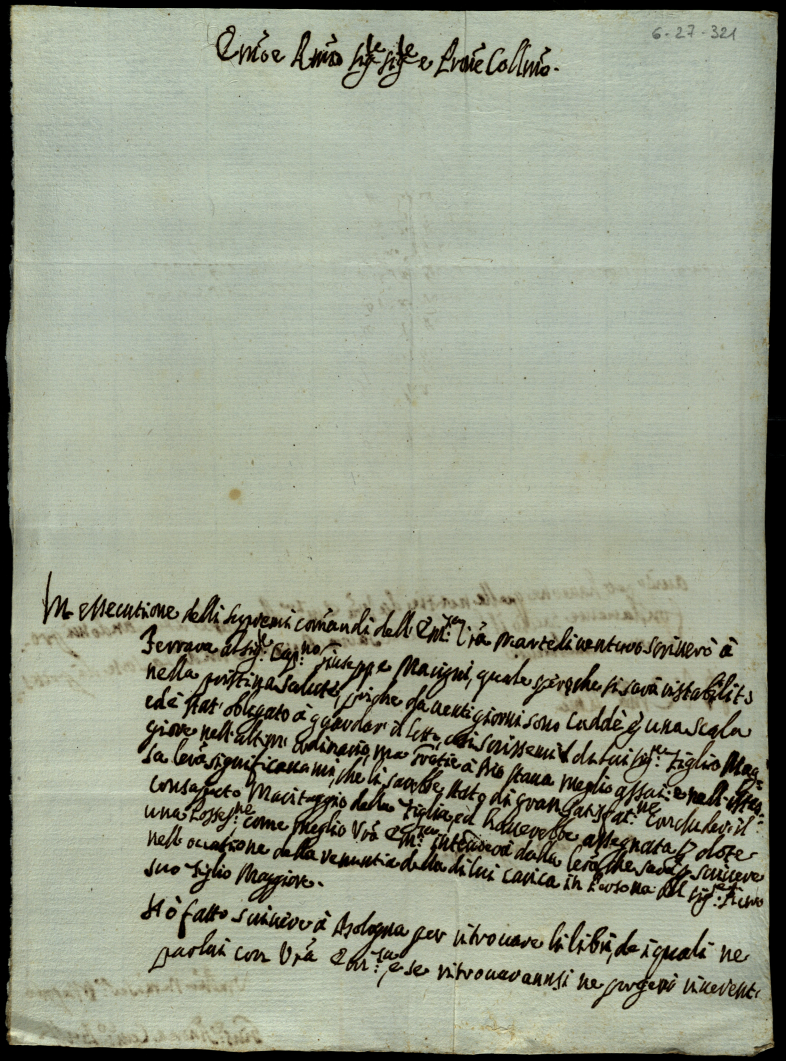 6-27-321
Emõ e Rmõ Sig.re Sig.re e Prone Collmõ.
In essecutione delli supremi comandi dell'Em.za Vrã Martedi venturo scriverò à
Ferrara al Sig.r Cap.no Giuseppe Macigni, quale spero che si sarà ristabilito
nella pristina salute, poiche da venti giorni sono caddè p una scala
ed è stato obligato à guardar il letto, così scrissemi il di lui Sig.re Figlio Mag.
giore nell'altro ordinario, ma gratie à Dio stava meglio assai, e nell'istes
sa lrã significavami, che li sarebbe stato di gran satisfat.ne concluder il
consaputo Maritaggio della Figlia, ed haverebbe assegnata p dote
una Possess.ne come meglio Vrã Em.za intenderà dalla lrã, che sarà p scrivere
nell'occasione della renuntia della di lui carica in Persona del Sig.r
suo Figlio Maggiore.
Hò fatto scrivere à Bologna per ritrovare li libri, de i quali ne
parlai con Vrã Em.za, e se ritrovarannsi ne porgerò riverent.